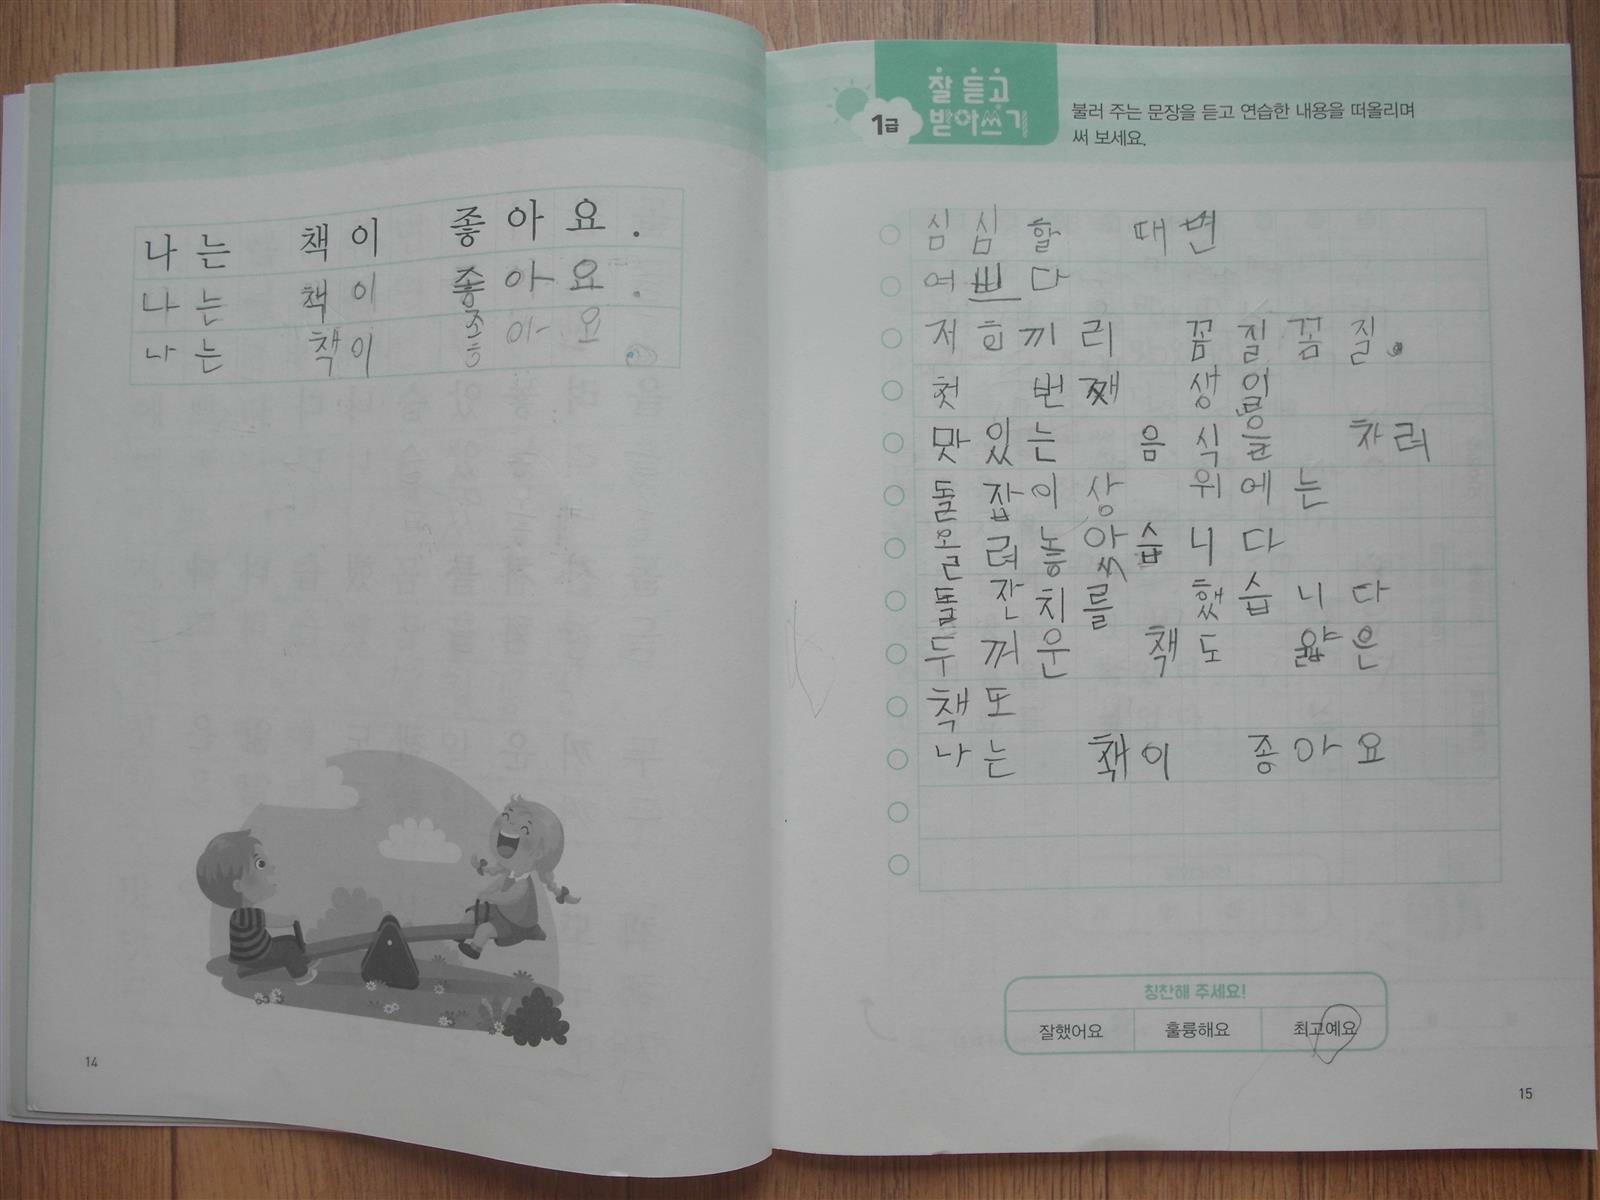 나는 책이 좋아요.
나는 책이 좋아요.
나는 책이 좋아요
14
잘 듣고
받아쓰기
1급
불러 주는 문장을 듣고 연습한 내용을 떠올리며
써 보세요.
심심할 때변
여쁘다
저희끼리 꼼질꼼질.
첫 번째 생일
맛있는 음식을 차려
돌잡이상 위에는
올려놓았습니다
돌잔치를 했습니다
두꺼운 책도 얇은
책또
나는 책이 좋아요
칭찬해 주세요!
잘했어요 훌륭해요 최고예요
15